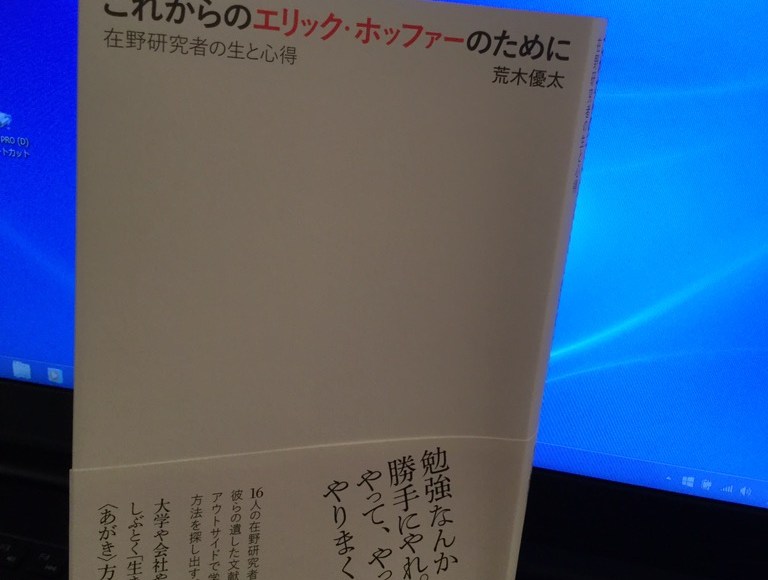 これからのエリック・ホッファーのために
在野研究者の生と心得
荒木優太
勉強なんか
勝手にやれ。
やって、やっ
やりまく
16人の在野研究者
彼らの遺した文献
アウトサイドで学
方法を探し出す
大学や会社や
しぶとく「生き
〈あがき〉方
PRO (D)
トカット